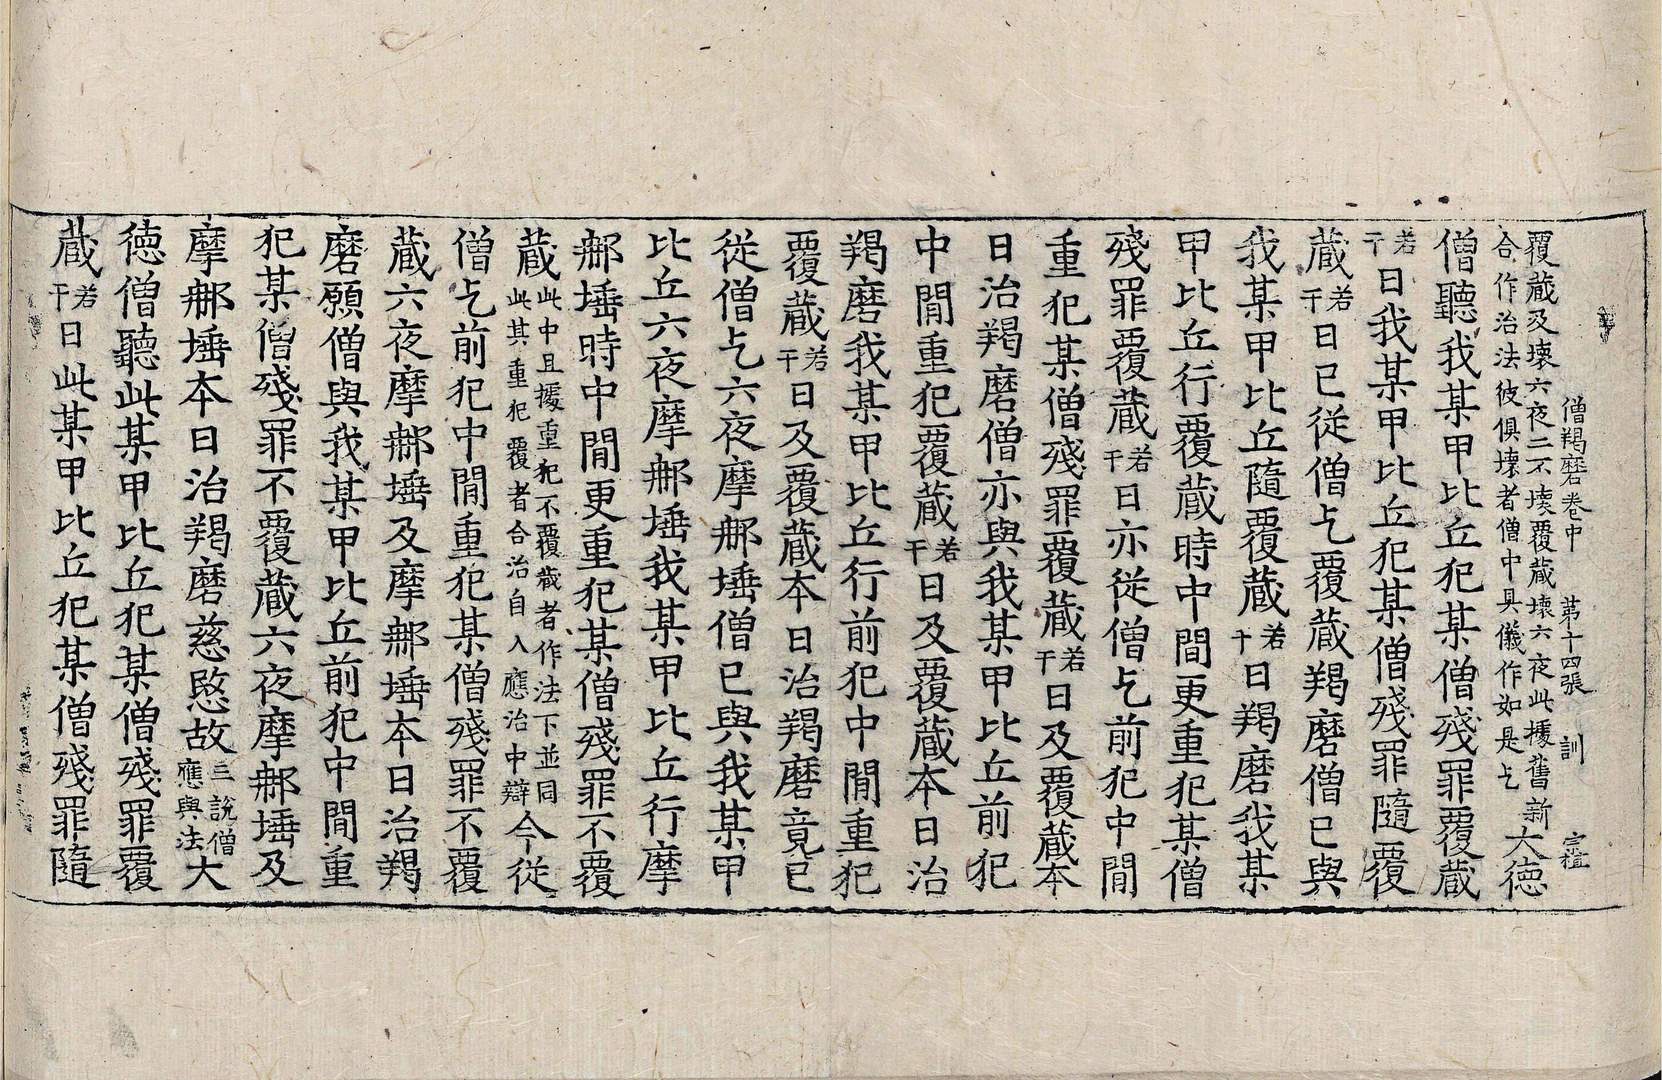 僧羯磨卷中　第十四張　訓
覆蔵及壞六夜二不壞覆蔵壞六夜此據舊新
合作治法彼俱壞者僧中具儀作如是乞大徳
僧聽我某甲比丘犯某僧殘罪覆蔵
若干日我某甲比丘犯某僧殘罪隨覆
蔵若干日已從僧乞覆蔵羯磨僧已與
我某甲比丘隨覆蔵若干日羯磨我某
甲比丘行覆蔵時中間更重犯某僧
殘罪覆蔵若干日亦從僧乞前犯中間
重犯某僧殘罪覆蔵若干日及覆蔵本
日治羯磨僧亦與我某甲比丘前犯
中間重犯覆蔵若干日及覆蔵本日治
羯磨我某甲比丘行前犯中間重犯
覆蔵若干日及覆蔵本日治羯磨竟已
從僧乞六夜摩䣕埵僧已與我某甲
比丘六夜摩䣕埵我某甲比丘行摩
䣕埵時中間更重犯某僧殘罪不覆
蔵此中且據重犯不覆蔵者作法下並同
此其重犯覆者合治自入應治中辯今從
僧乞前犯中間重犯某僧殘罪不覆
蔵六夜摩䣕埵及摩䣕埵本日治羯
磨願僧與我某甲比丘前犯中間重
犯某僧殘罪不覆蔵六夜摩䣕埵及
摩䣕埵本日治羯磨慈愍故三說僧應與法大
徳僧聽此某甲比丘犯某僧殘罪覆
蔵若干日此某甲比丘犯某僧殘罪隨